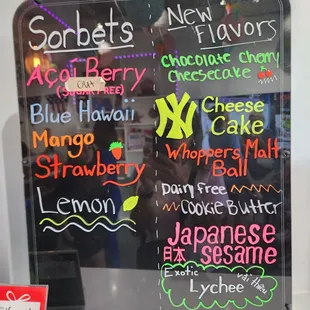 Sorbets
Açaí Berry
(SUGAR FREE)
OUT
Blue Hawaii
Mango
Strawberry
Lemon
New
Flavors
Chocolate Cherry
Cheesecake
NY Cheese
Cake
Whoppers Malt
Ball
Dairy Free
Cookie Butter
Japanese
日本 sesame
Exotic
Lychee vải thiều